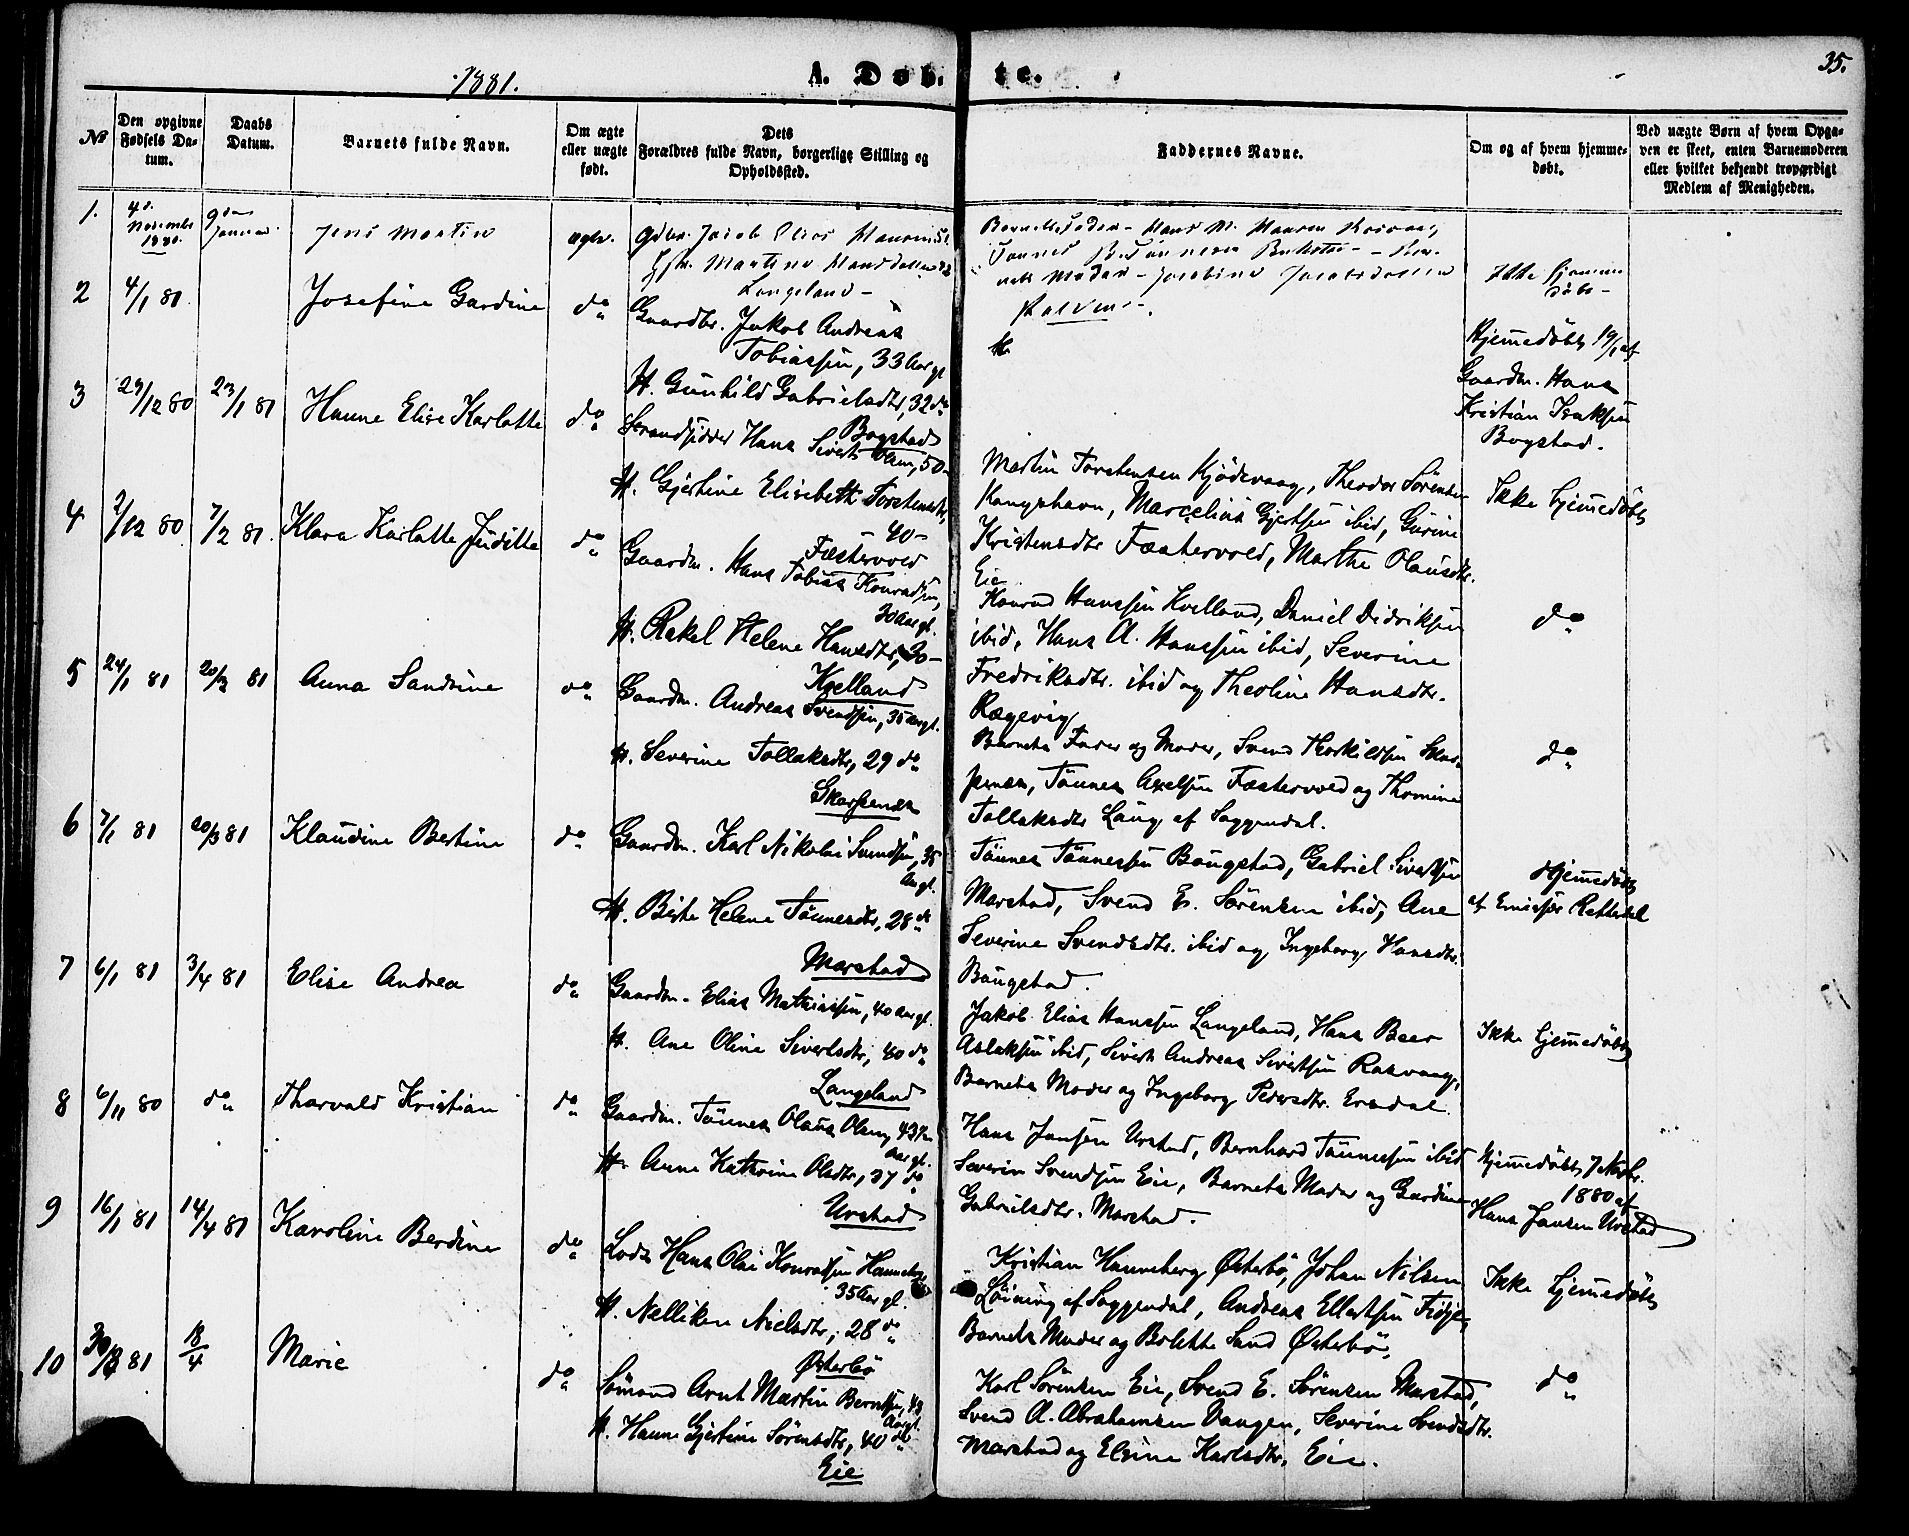 1881.
A. Døbte.
35.
No
Den opgivne Fødsels Datum.
Daabs Datum.
Barnets fulde Navn.
Om ægte eller uægte født.
Dets Forældres fulde Navn, borgerlige Stilling og Opholdssted.
Faddernes Navne.
Om og af hvem hjemmedøbt.
Ved uægte Børn af hvem Opgaven er skeet, enten Barnemoderen eller hvilket bekjendt troværdigt Medlem af Menigheden.
1.
November
1880
Januar
Jens Martin
ægte.
Gdbr. Jacob Elias Hansen
Martine
Langeland
Barnets Fader - Hans M. Hansen
Barnets Moder - Jacobine Jacobsdatter
Ikke hjemme
døbt
2
4/1 81
Josefine Gardine
do
Gaardbr. Jakob Andreas
Tobiassen, 33 Aar gl
H. Gunhild Gabrielsdtr, 32 do
Bogstad
Hjemmedøbt 19/1 af
Gaardm. Hans
Kristian Isaksen
Bogstad.
3
29/12 80
23/1 81
Hanne Elise Karlotte
do
Strandsidder Hans Siverts Olsen, 50
H. Gjertine Elisebeth Torstensdtr,
40
Fæstervold
Martin Torstensen Kjødevaag, Theodor Sørensen
Kongshavn, Marcelius Gjertsen ibid, Gurine
Kristensdtr Fæstervold, Marthe Olausdtr.
Eie
Ikke hjemmedøbt
4
2/12 80
7/2 81
Klara Karlotte Juditte
do
Gaardm. Hans Tobias Konradsen,
30 Aar gl.
H. Rakel Helene Hansdtr, 30
Kvelland
Konrad Hanssen Kvelland, Daniel Didriksen
ibid, Hans A. Hanssen ibid, Severine
Fredriksdtr. ibid og Theoline Hansdtr.
Rægevig
do
5
24/1 81
20/3 81
Anna Sandrine
do
Gaardm. Andreas Svendsen, 35 Aar gl.
H. Severine Tollaksdtr, 29 do
Skarpenes
Barnets Fader og Moder, Svend Thorkildsen Skar-
penes, Tønnes Axelsen Fæstervold og Thomine
Tollaksdtr Laug af Soggendal.
do
6
7/1 81
20/3 81
Klaudine Bertine
do
Gaardm. Karl Nikolai Svendsen, 35
Aar gl.
H. Birte Helene Tønnesdtr, 28 do
Marstad
Tønnes Tønnessen Baugstad, Gabriel Sivertsen
Marstad, Svend E. Sørensen ibid, Ane
Severine Svendsdtr. ibid og Ingeborg Hansdtr.
Baugstad.
Hjemmedøbt
af Emissær Rettedal
7
6/1 81
3/4 81
Elise Andrea
do
Gaardm. Elias Mathiassen, 40 Aar gl.
H. Ane Oline Sivertsdtr, 40 do
Langeland
Jakob Elias Hanssen Langeland, Hans Beer
Aslaksen ibid, Sivert Andreas Sivertsen Rosvaag,
Barnets Moder og Ingeborg Pedersdtr. Ersdal.
Ikke hjemmedøbt
8
6/11 80
do
Thorvald Kristian
do
Gaardm. Tønnes Olaus Olsen, 43
Aar gl.
H. Anne Kathrine Olsdtr, 37 do
Urstad
Hans Jansen Urstad, Bernhard Tønnessen ibid
Severin Svendsen Eie, Barnets Moder og Gurdine
Gabrielsdtr. Marstad.
Hjemmedøbt 7 Novbr.
1880 af
Hans Jansen Urstad
9
16/1 81
14/4 81
Karoline Berdine
do
Lods Hans Olai Konradsen Hanneberg
35 Aar gl.
H. Nelliken Nielsdtr, 28 do
Østerbø
Kristian Hanneberg Østerbø, Johan Nilsen
Løvning af Soggendal, Andreas Ellertsen Fidje,
Barnets Moder og Bolette Sand Østerbø.
Ikke hjemmedøbt
10
81
18/4
Marie
do
Sømand Arnt Martin Berntsen, 43
Aar gl
H. Hanne Gjertine Sørensdtr, 40 do
Eie
Karl Sørensen Eie, Svend E. Sørensen Marstad,
Svend A. Abrahamsen Vangen, Severine Svendsdtr.
Marstad og Elvine Karlsdtr. Eie.
do